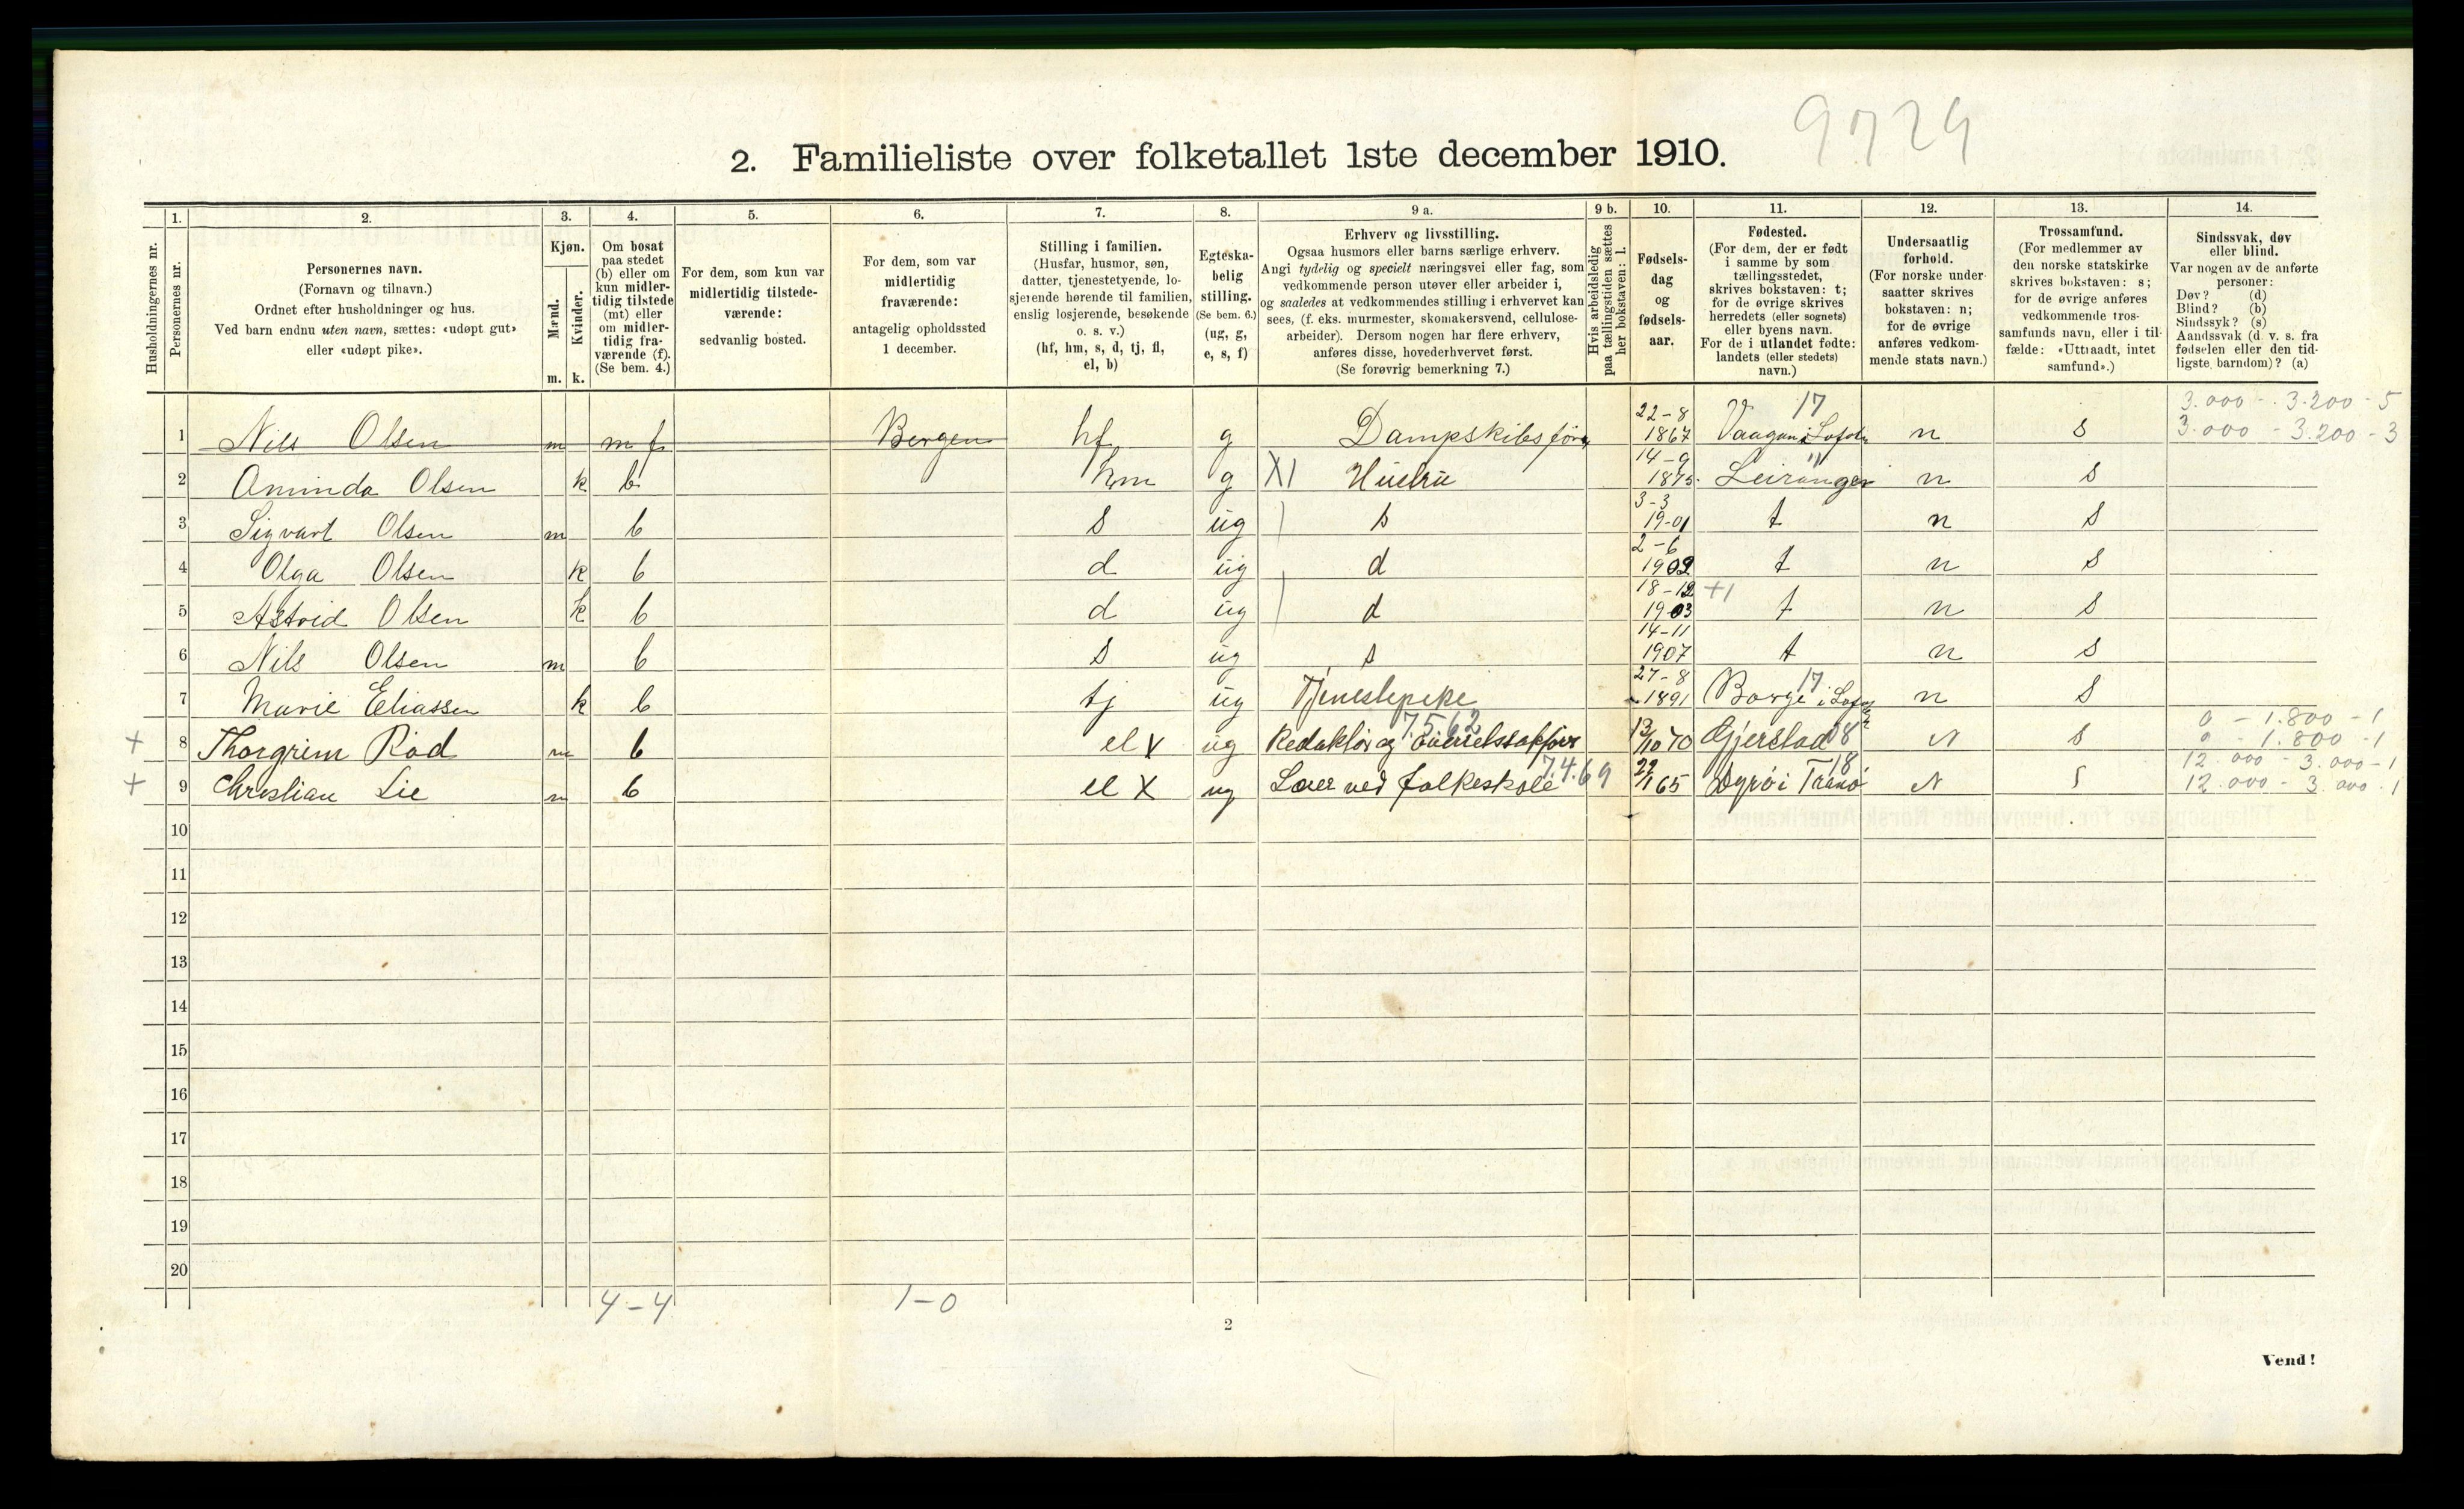 9729
2. Familieliste over folketallet 1ste december 1910.
Husholdningernes nr.
1. Personernes nr.
2. Personernes navn.
(Fornavn og tilnavn.)
Ordnet efter husholdninger og hus.
Ved barn endnu uten navn, sættes: «udøpt gut»
eller «udøpt pike».
3. Kjøn.
Mænd. m.
Kvinder. k.
4. Om bosat
paa stedet
(b) eller om
kun midler-
tidig tilstede
(mt) eller
om midler-
tidig fra-
værende (f).
(Se bem. 4.)
5. For dem, som kun var
midlertidig tilstede-
værende:
sedvanlig bosted.
6. For dem, som var
midlertidig
fraværende:
antagelig opholdssted
1 december.
7. Stilling i familien.
(Husfar, husmor, søn,
datter, tjenestetyende, lo-
sjerende hørende til familien,
enslig losjerende, besøkende
o. s. v.)
(hf, hm, s, d, tj, fl,
el, b)
8. Egteska-
belig
stilling.
(Se bem. 6.)
(ug, g,
e, s, f)
9 a. Erhverv og livsstilling.
Ogsaa husmors eller barns særlige erhverv.
Angi tydelig og specielt næringsvei eller fag, som
vedkommende person utøver eller arbeider i,
og saaledes at vedkommendes stilling i erhvervet kan
sees, (f. eks. murmester, skomakersvend, cellulose-
arbeider). Dersom nogen har flere erhverv,
anføres disse, hovederhvervet først.
(Se forøvrig bemerkning 7.)
9 b. Hvis arbeidsledig
paa tællingstiden sættes
her bokstaven: l.
10. Fødsels-
dag
og
fødsels-
aar.
11. Fødested.
(For dem, der er født
i samme by som
tællingsstedet,
skrives bokstaven: t;
for de øvrige skrives
herredets (eller sognets)
eller byens navn.
For de i utlandet fødte:
landets (eller stedets)
navn.)
12. Undersaatlig
forhold.
(For norske under-
saatter skrives
bokstaven: n;
for de øvrige
anføres vedkom-
mende stats navn.)
13. Trossamfund.
(For medlemmer av
den norske statskirke
skrives bokstaven: s;
for de øvrige anføres
vedkommende tros-
samfunds navn, eller i til-
fælde: «Uttraadt, intet
samfund».)
14. Sindssvak, døv
eller blind.
Var nogen av de anførte
personer:
Døv? (d)
Blind? (b)
Sindssyk? (s)
Aandssvak (d. v. s. fra
fødselen eller den tid-
ligste barndom)? (a)
1 Nils Olsen m m f Bergen hf g Dampskibsfører 22-8 1867 Vaagan i Lofoten 17 n s 3.000 - 3.200 - 5
3.000 - 3.200 - 3
2 Aminda Olsen k b hm g XI Hustru 14-9 1875 Leiranger " n s
3 Sigvart Olsen m b s ug s 3-3 19-01 t n s
4 Olga Olsen k b d ug d 2-6 1902 t n s
5 Astrid Olsen k b d ug d 18-12 1903 +1 t n s
6 Nils Olsen m b s ug s 14-11 1907 t n s
7 Marie Eliassen k b tj ug Tjenestepike 27-8 1891 Borge i Lofoten 17 n s
+ 8 Thorgrim Rød m b el x ug Redaktør og 7.5.62 13/10 70 Gjerstad 18 N s 0 - 1.800 - 1
0 - 1.800 - 1
+ 9 Christian Lie m b el X ug Lærer ved folkeskole 7.4.69 22/1 65 Dyrø i Tranø 18 N s 12.000 - 3.000 - 1
12.000 - 3.000 - 1
10
11
12
13
14
15
16
17
18
19
20
4-4 1-0
2
Vend!